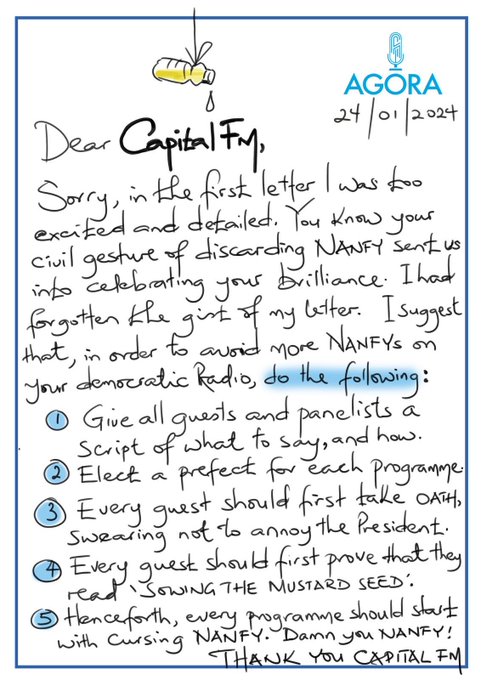 AGORA
24/01/2024
Dear Capital FM,
Sorry, in the first letter I was too
excited and detailed. You know your
civil gesture of discarding NANFY sent us
into celebrating your brilliance. I had
forgotten the gist of my letter. I suggest
that, in order to avoid more NANFYs on
your democratic Radio, do the following:
1 Give all guests and panelists a
script of what to say, and how.
2 Elect a prefect for each programme.
3 Every guest should first take OATH,
swearing not to annoy the President.
4 Every guest should first prove that they
read 'SOWING THE MUSTARD SEED'.
5 Henceforth, every programme should start
with cursing NANFY. Damn you NANFY!
THANK YOU CAPITAL FM